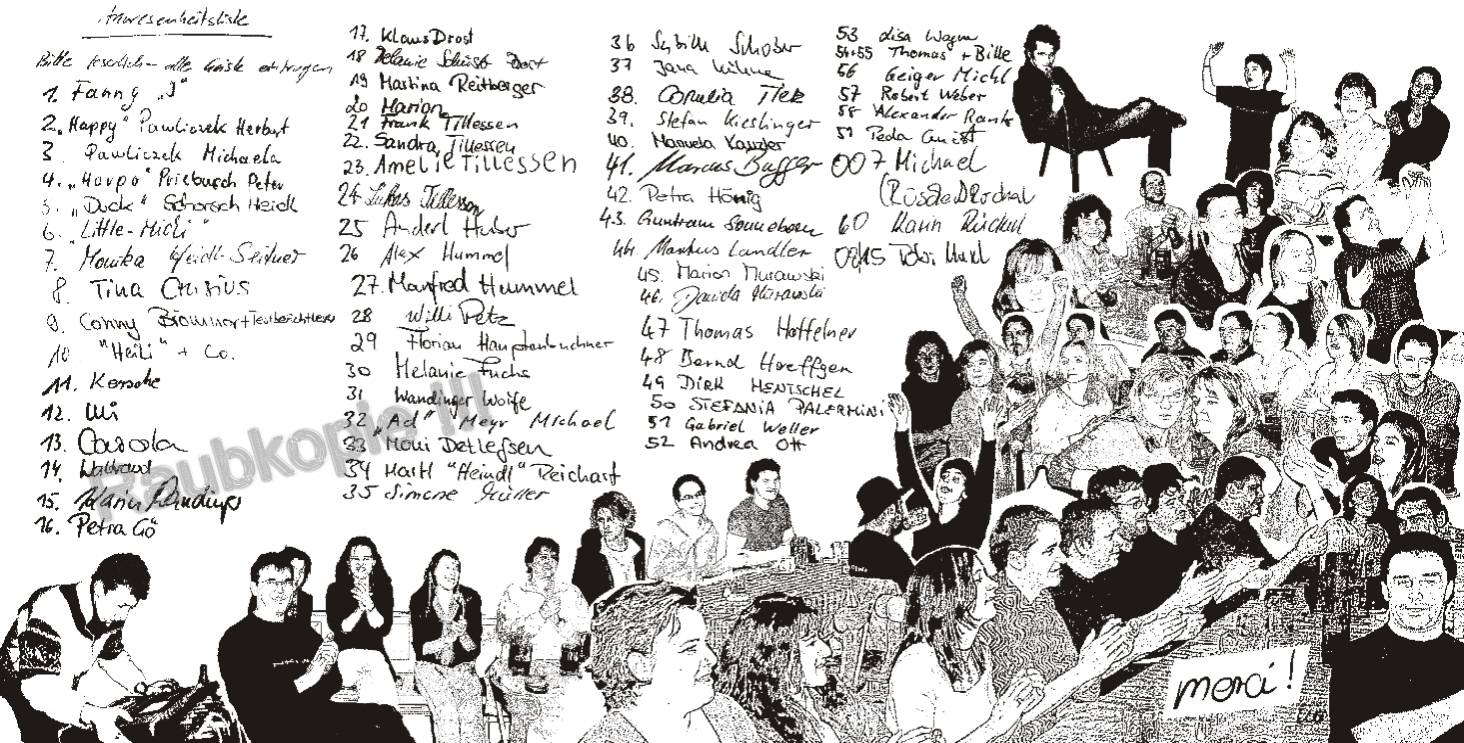 Anwesenheitsliste
Bitte leserlich - alle Gäste eintragen
1. Fanny "J"
2. "Happy" Pawliczek Herbert
3. Pawliczek Michaela
4. "Harpo" Prieburch Peter
5. "Duck" Schorsch Heidl
6. "Little-Michi"
7. Monika Heidl-Seitner
8. Tina Crusius
9. Conny
10. "Heili" + Co.
11. Kersche
12. Uli
13. Carola
14. Waltraud
15. Karin
16. Petra Gö
17. Klaus Drost
18 Melanie Drost
19 Martina Reitberger
20 Marion
21 Frank Tillessen
22. Sandra Tillessen
23. Amelie Tillessen
24 Lukas Tillessen
25 Anderl Huber
26 Alex Hummel
27. Manfred Hummel
28 Willi Petz
29 Florian Hauptenbuchner
30 Melanie Fuchs
31 Wandinger Wolfe
32 "Ad" Meyr Michael
33 Moni Detlefsen
34 Martl "Heindl" Reichart
35 Simone Müller
36 Sybille Schober
37 Jana Kühne
38. Cornelia
39. Stefan Kieslinger
40. Manuela Kanzler
41. Marcus Bugger
42. Petra Hönig
43. Guntram Sonneborn
44. Markus Landler
45. Marion Murawski
46. Daniela Murawski
47 Thomas Haffelner
48 Bernd Hoeffgen
49 Dirk HENTSCHEL
50 STEFANIA PALERMINI
51 Gabriel Weller
52 Andrea Ott
53 Lisa Wagner
54+55 Thomas + Bille
56 Geiger Michl
57 Robert Weber
58 Alexander
59 Peda
007 Michael
60 Karin
0815
Raubkopie !!!
merci!